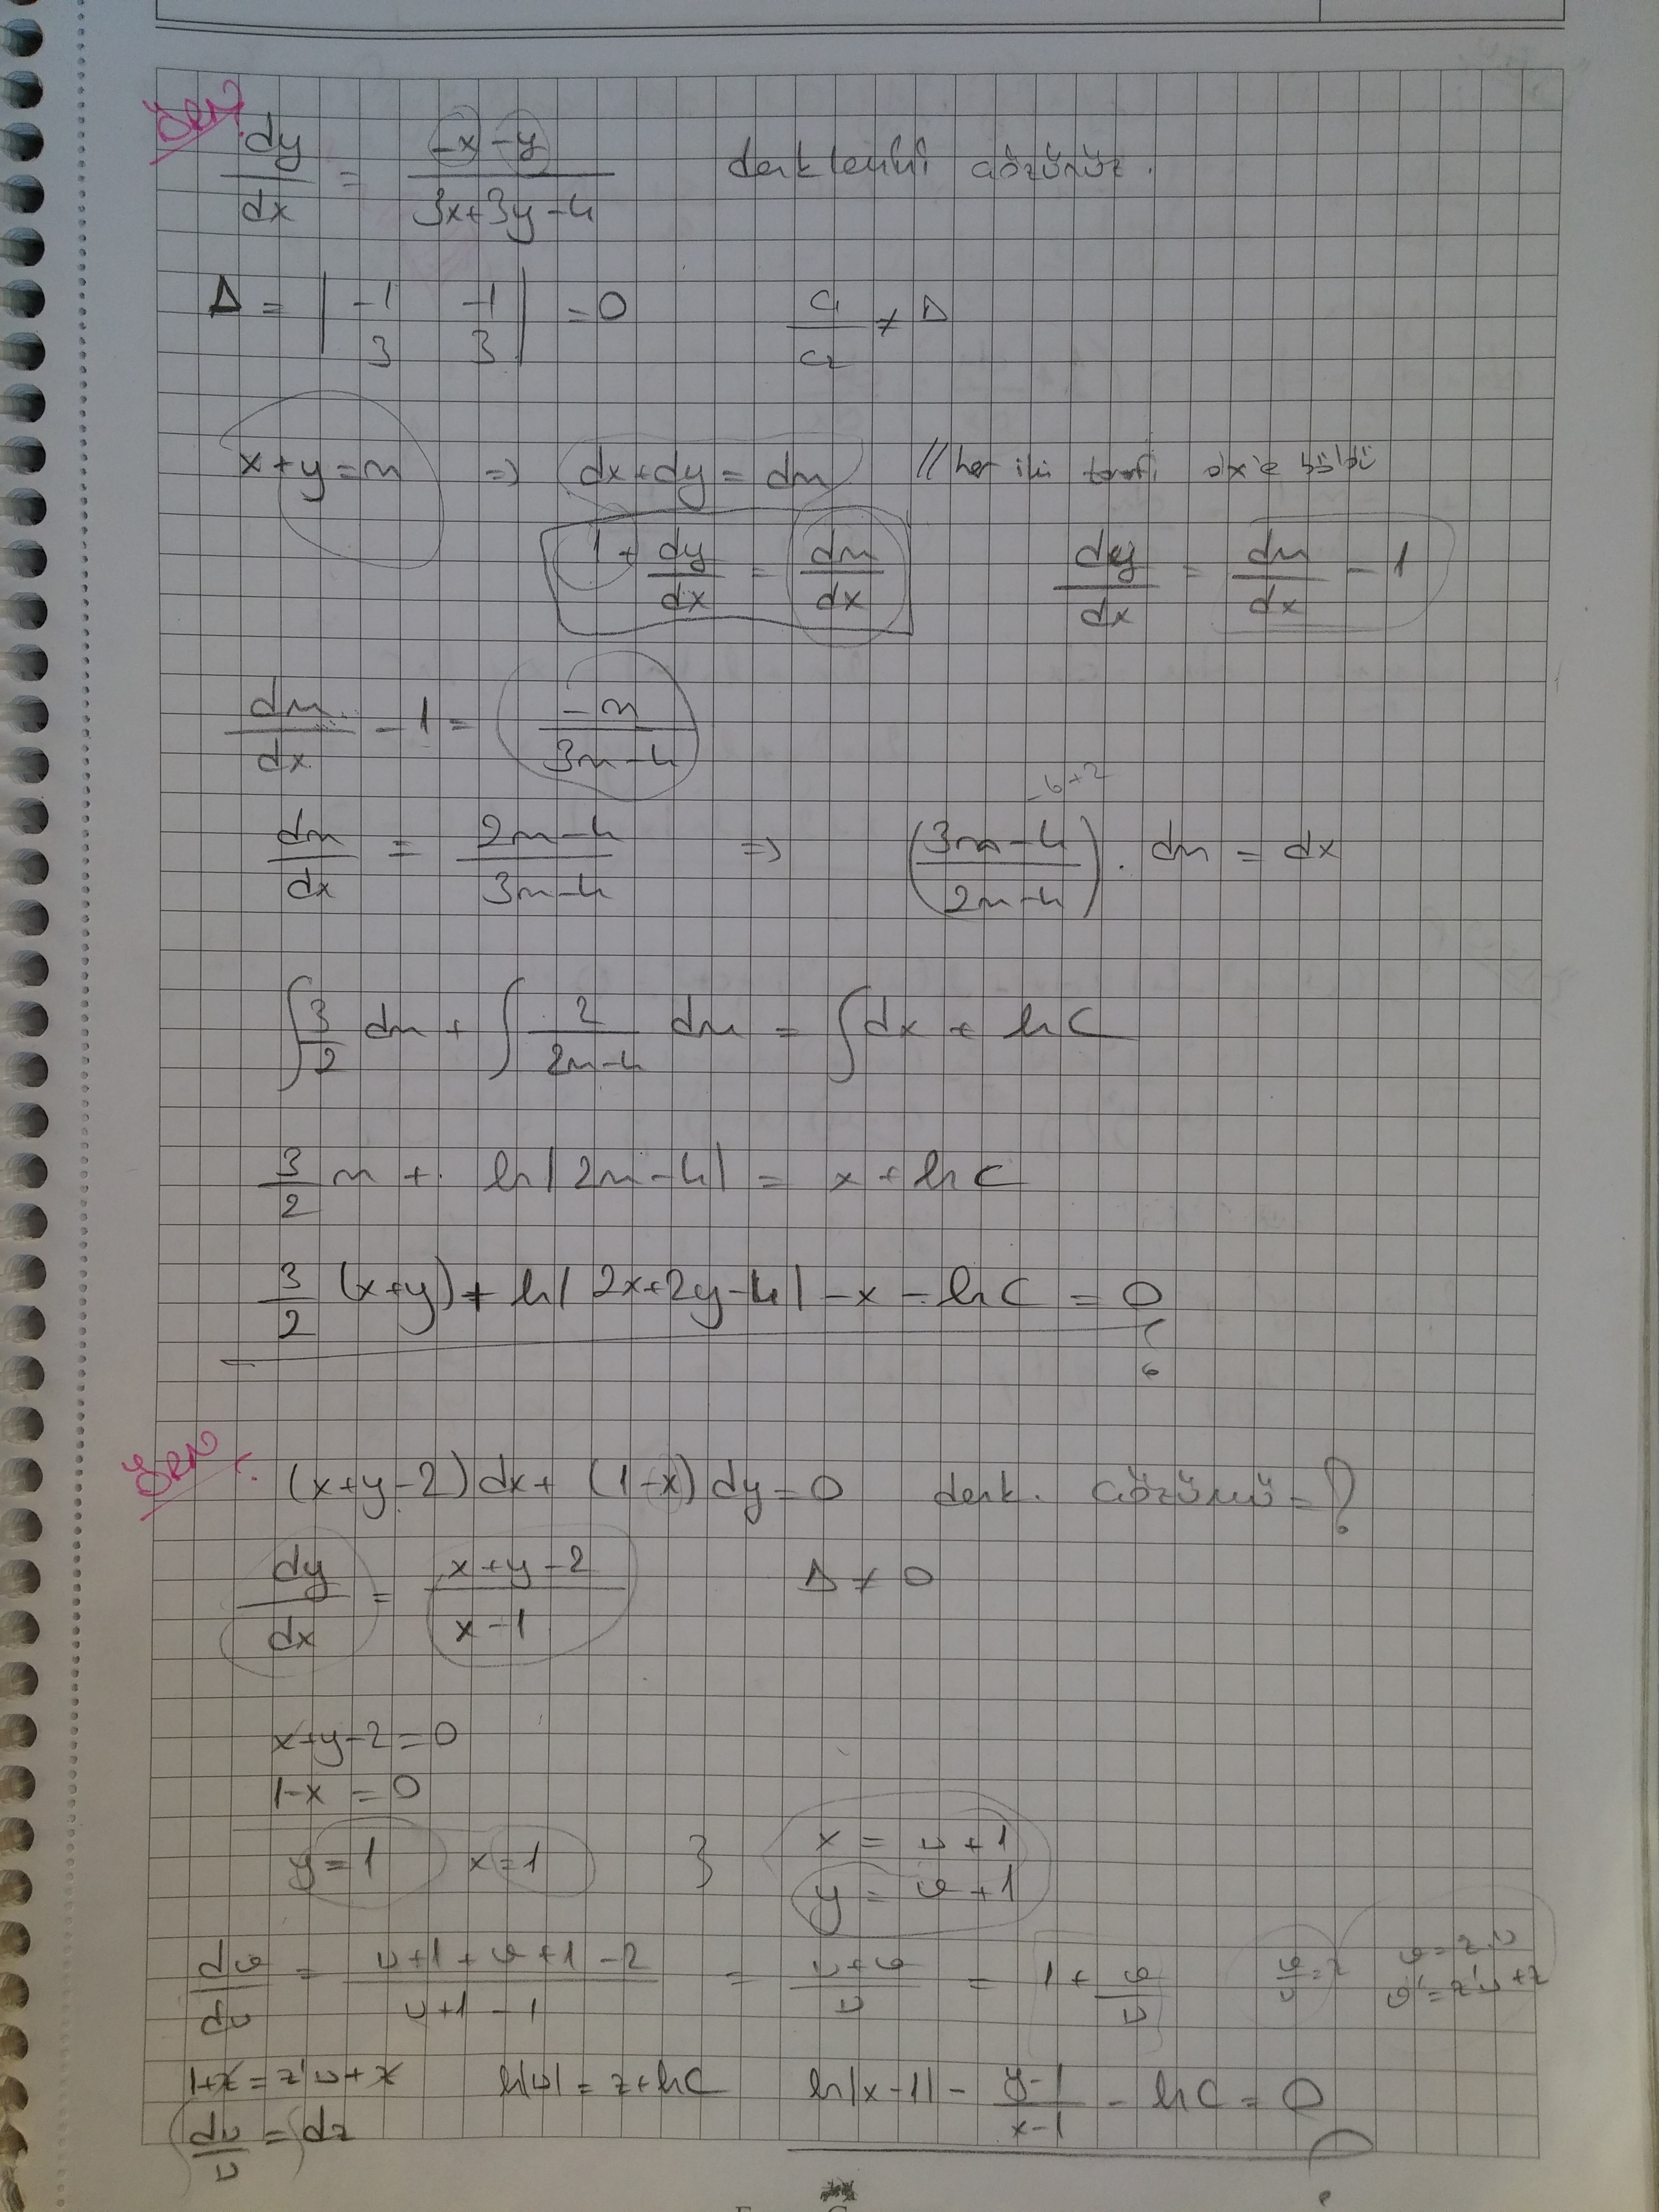 Örn. dy/dx = (-x-y)/(3x+3y-4) denklemini çözünüz.
Δ = | -1 -1 ; 3 3 | = 0     c₁/c₂ ≠ Δ
x+y=u ⇒ dx+dy=du // her iki tarafı dx'e böldü
1 + dy/dx = du/dx     dy/dx = du/dx - 1
du/dx - 1 = -u/(3u-4)
-6+2
du/dx = (2u-4)/(3u-4) ⇒ ((3u-4)/(2u-4)) . du = dx
∫ 3/2 du + ∫ 2/(2u-4) du = ∫ dx + ln C
3/2 u + ln|2u-4| = x + ln C
3/2 (x+y) + ln|2x+2y-4| - x - ln C = 0
Örn. (x+y-2)dx + (1-x)dy = 0 denk. çözümü = ?
dy/dx = (x+y-2)/(x-1)     Δ ≠ 0
x+y-2=0
1-x=0
y=1 x=1 } x = u+1
y = v+1
dv/du = (u+1+v+1-2)/(u+1-1) = (u+v)/u = 1 + v/u     v/u = z     v=z.u
v'=z'u+z
1+z = z'u+z     ln|u| = z+ln C     ln|x-1| - (y-1)/(x-1) - ln C = 0
du/u = dz